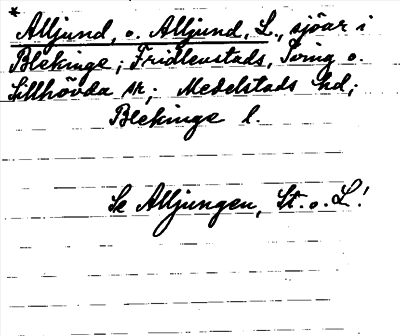 *
Alljund, o. Alljund, L., sjöar i
Blekinge; Fridlevstads, Tving o.
Sillhövda sn; Medelstads hd;
Blekinge l.
Se Alljungen, St. o. L!